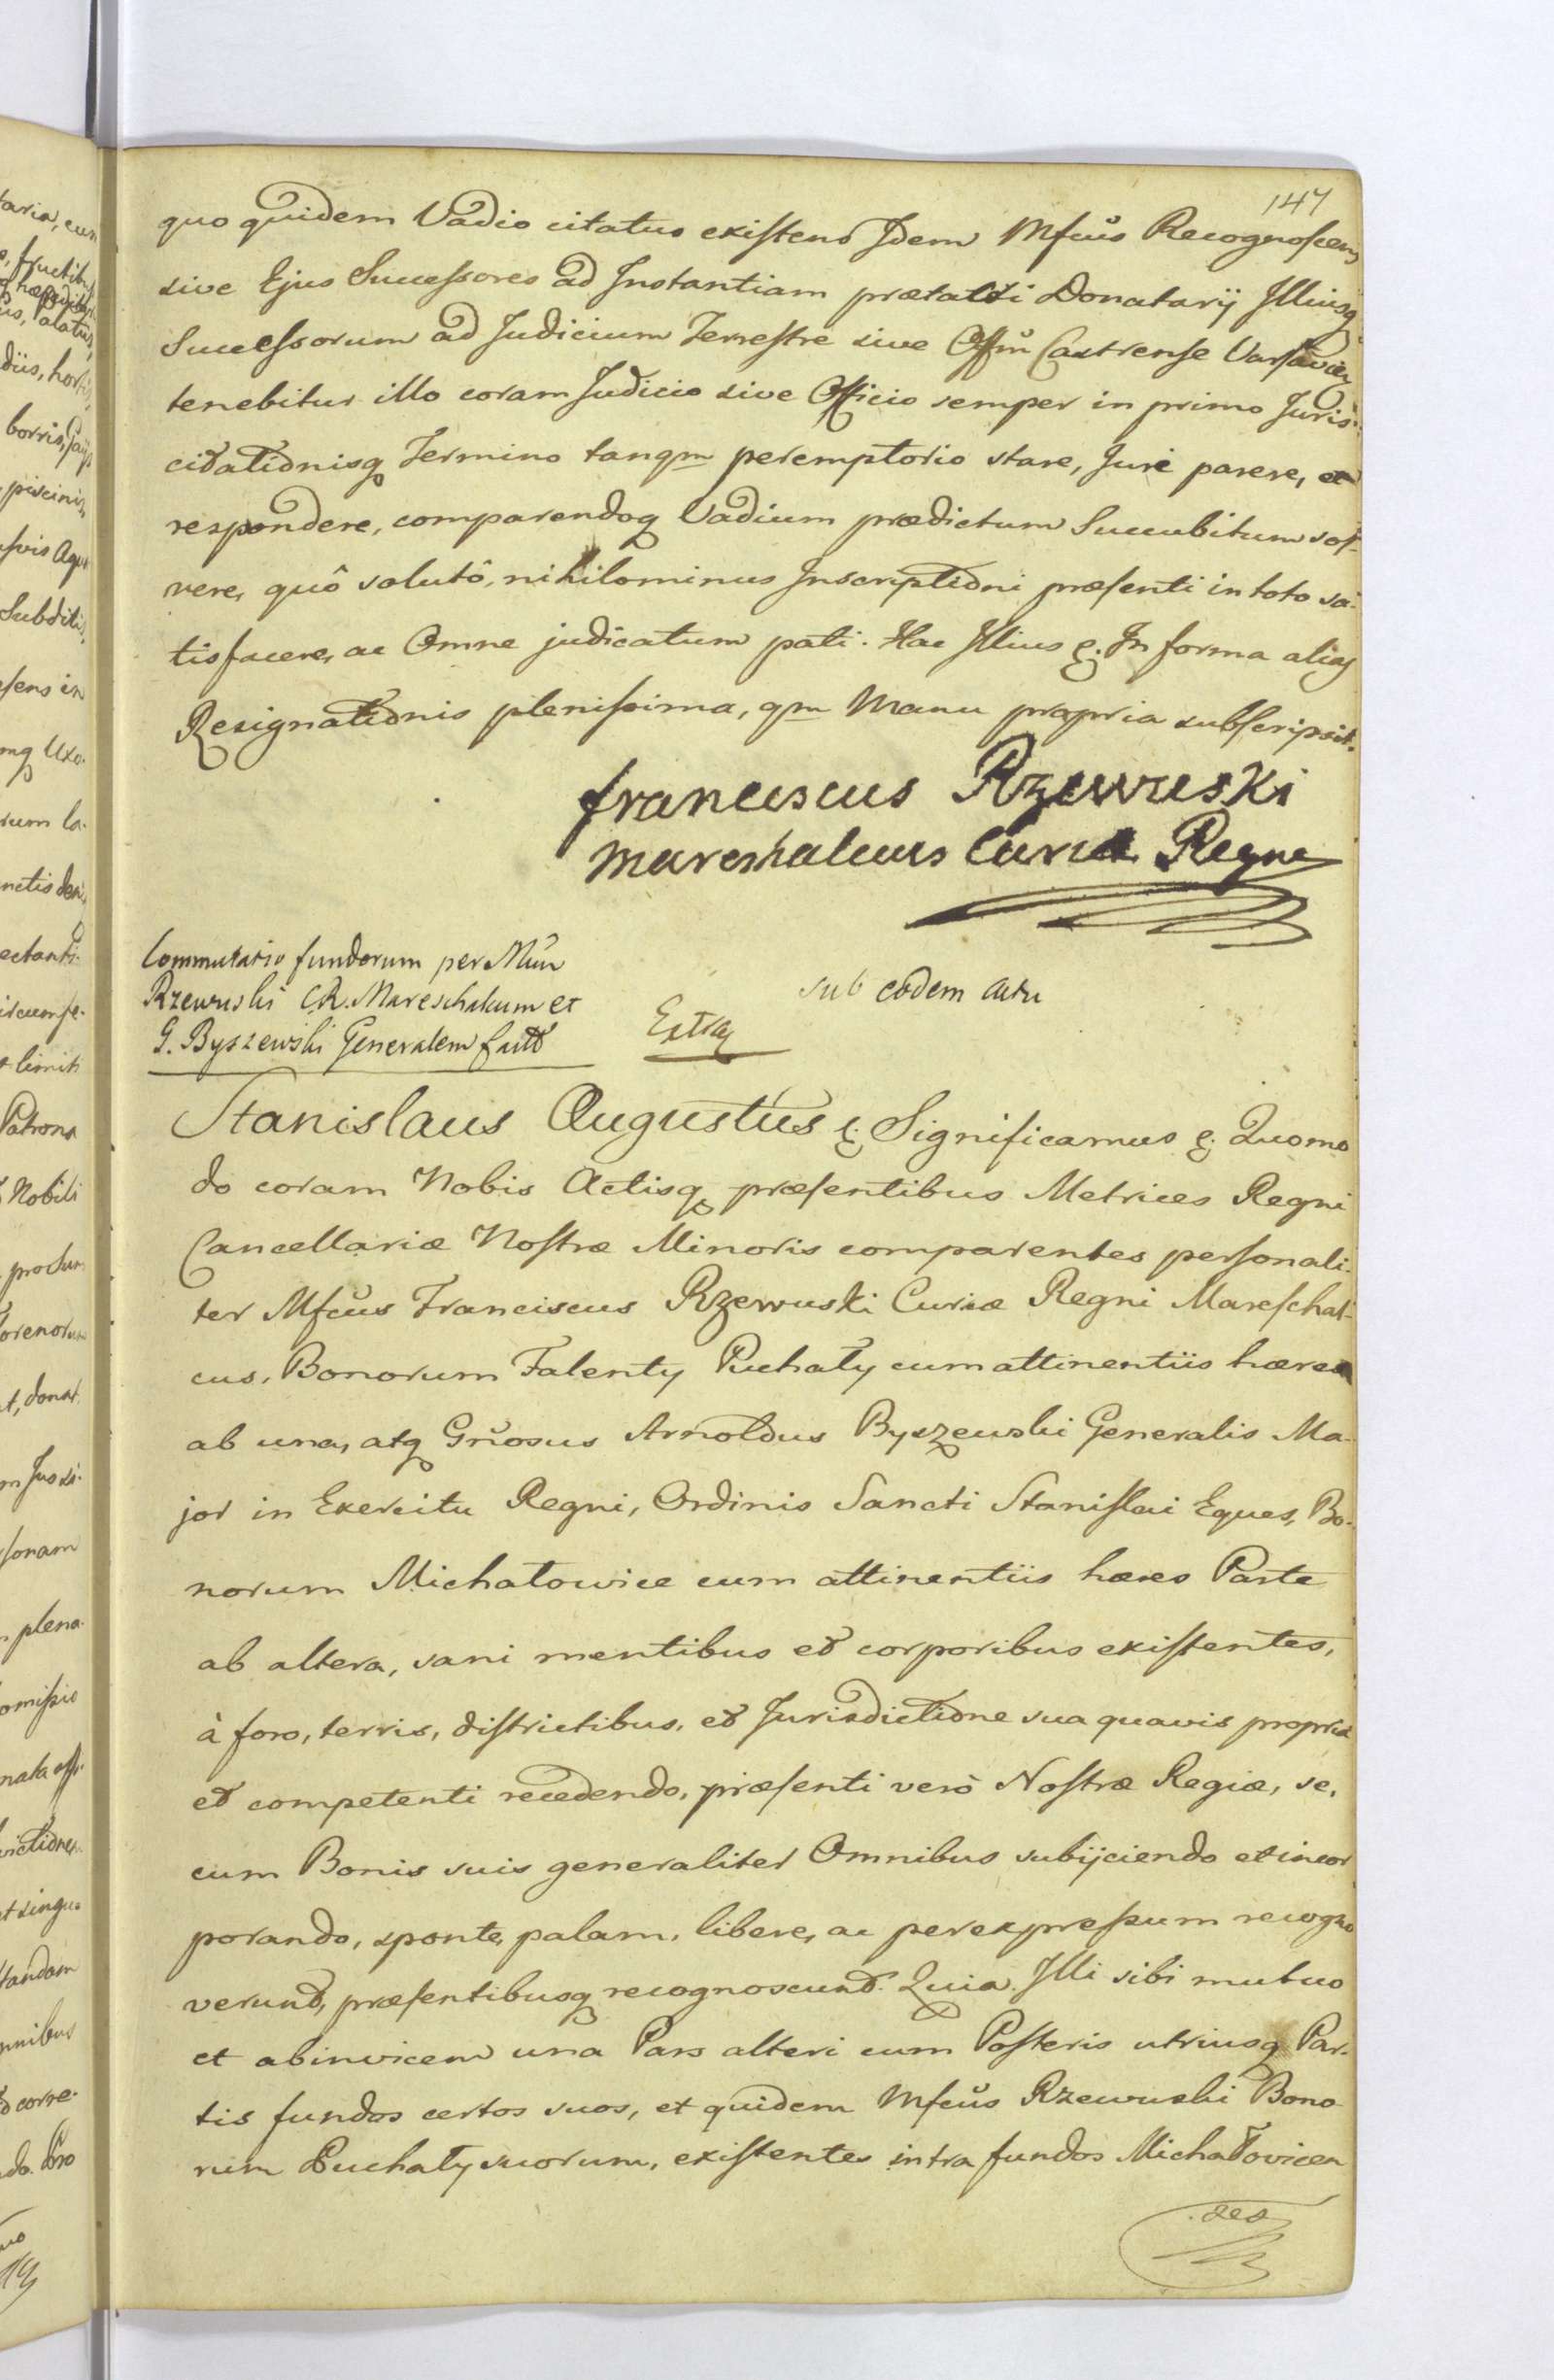 147
quo quidem Vadio citatus existens Idem Mfcus Recognoscens
sive Ejus Successores ad Instantiam prætacti Donatarij Illiusq
Successorum ad Judicium Terrestre sive Offm Castrense Varsavien
tenebitur illo coram Judicio sive Officio semper in primo Juris
citationisq Termino tanqm peremptorio stare, Juri parere, et
respondere, comparendoq Vadium prædictum Succubitum sol-
vere, quô solutô, nihilominus Inscriptioni præsenti in toto sa-
tisfacere, ac Omne judicatum pati. Hac Illius &. In forma alias
Resignationis plenissima, qm Manu propria subscripsit.
franciscus Rzewuski
mareshalcus Curiæ Regni
Commutatio fundorum per Mum
Rzewuski C.R. Mareschalcum et
G. Byszewski Generalem factâ
Extra
sub eodem actu
Stanislaus Augustus &. Significamus &. Quomo
do coram Nobis Actisq præsentibus Metrices Regni
Cancellariæ Nostræ Minoris comparentes personali-
ter Mfcus Franciscus Rzewuski Curiæ Regni Mareschal-
cus, Bonorum Falenty Puchały cum attinentiis hæres
ab una, atq Grosus Arnoldus Byszewski Generalis Ma-
jor in Exercitu Regni, Ordinis Sancti Stanislai Eques, Bo-
norum Michałowice cum attinentiis hæres Parte
ab altera, sani mentibus et corporibus existentes,
à foro, terris, districtibus, et Jurisdictione sua quavis propria
et competenti recedendo, præsenti verò Nostræ Regiæ, se,
cum Bonis suis generaliter Omnibus subijciendo et incor
porando, sponte, palam, libere, ac per expressum recogno
verunt, præsentibusq recognoscunt. Quia Illi sibi mutuo
et abinvicem una Pars alteri cum Posteris utriusq Par-
tis fundos certos suos, et quidem Mfcus Rzewuski Bono-
rum Puchały suorum, existentes intra fundos Michałovicen
des